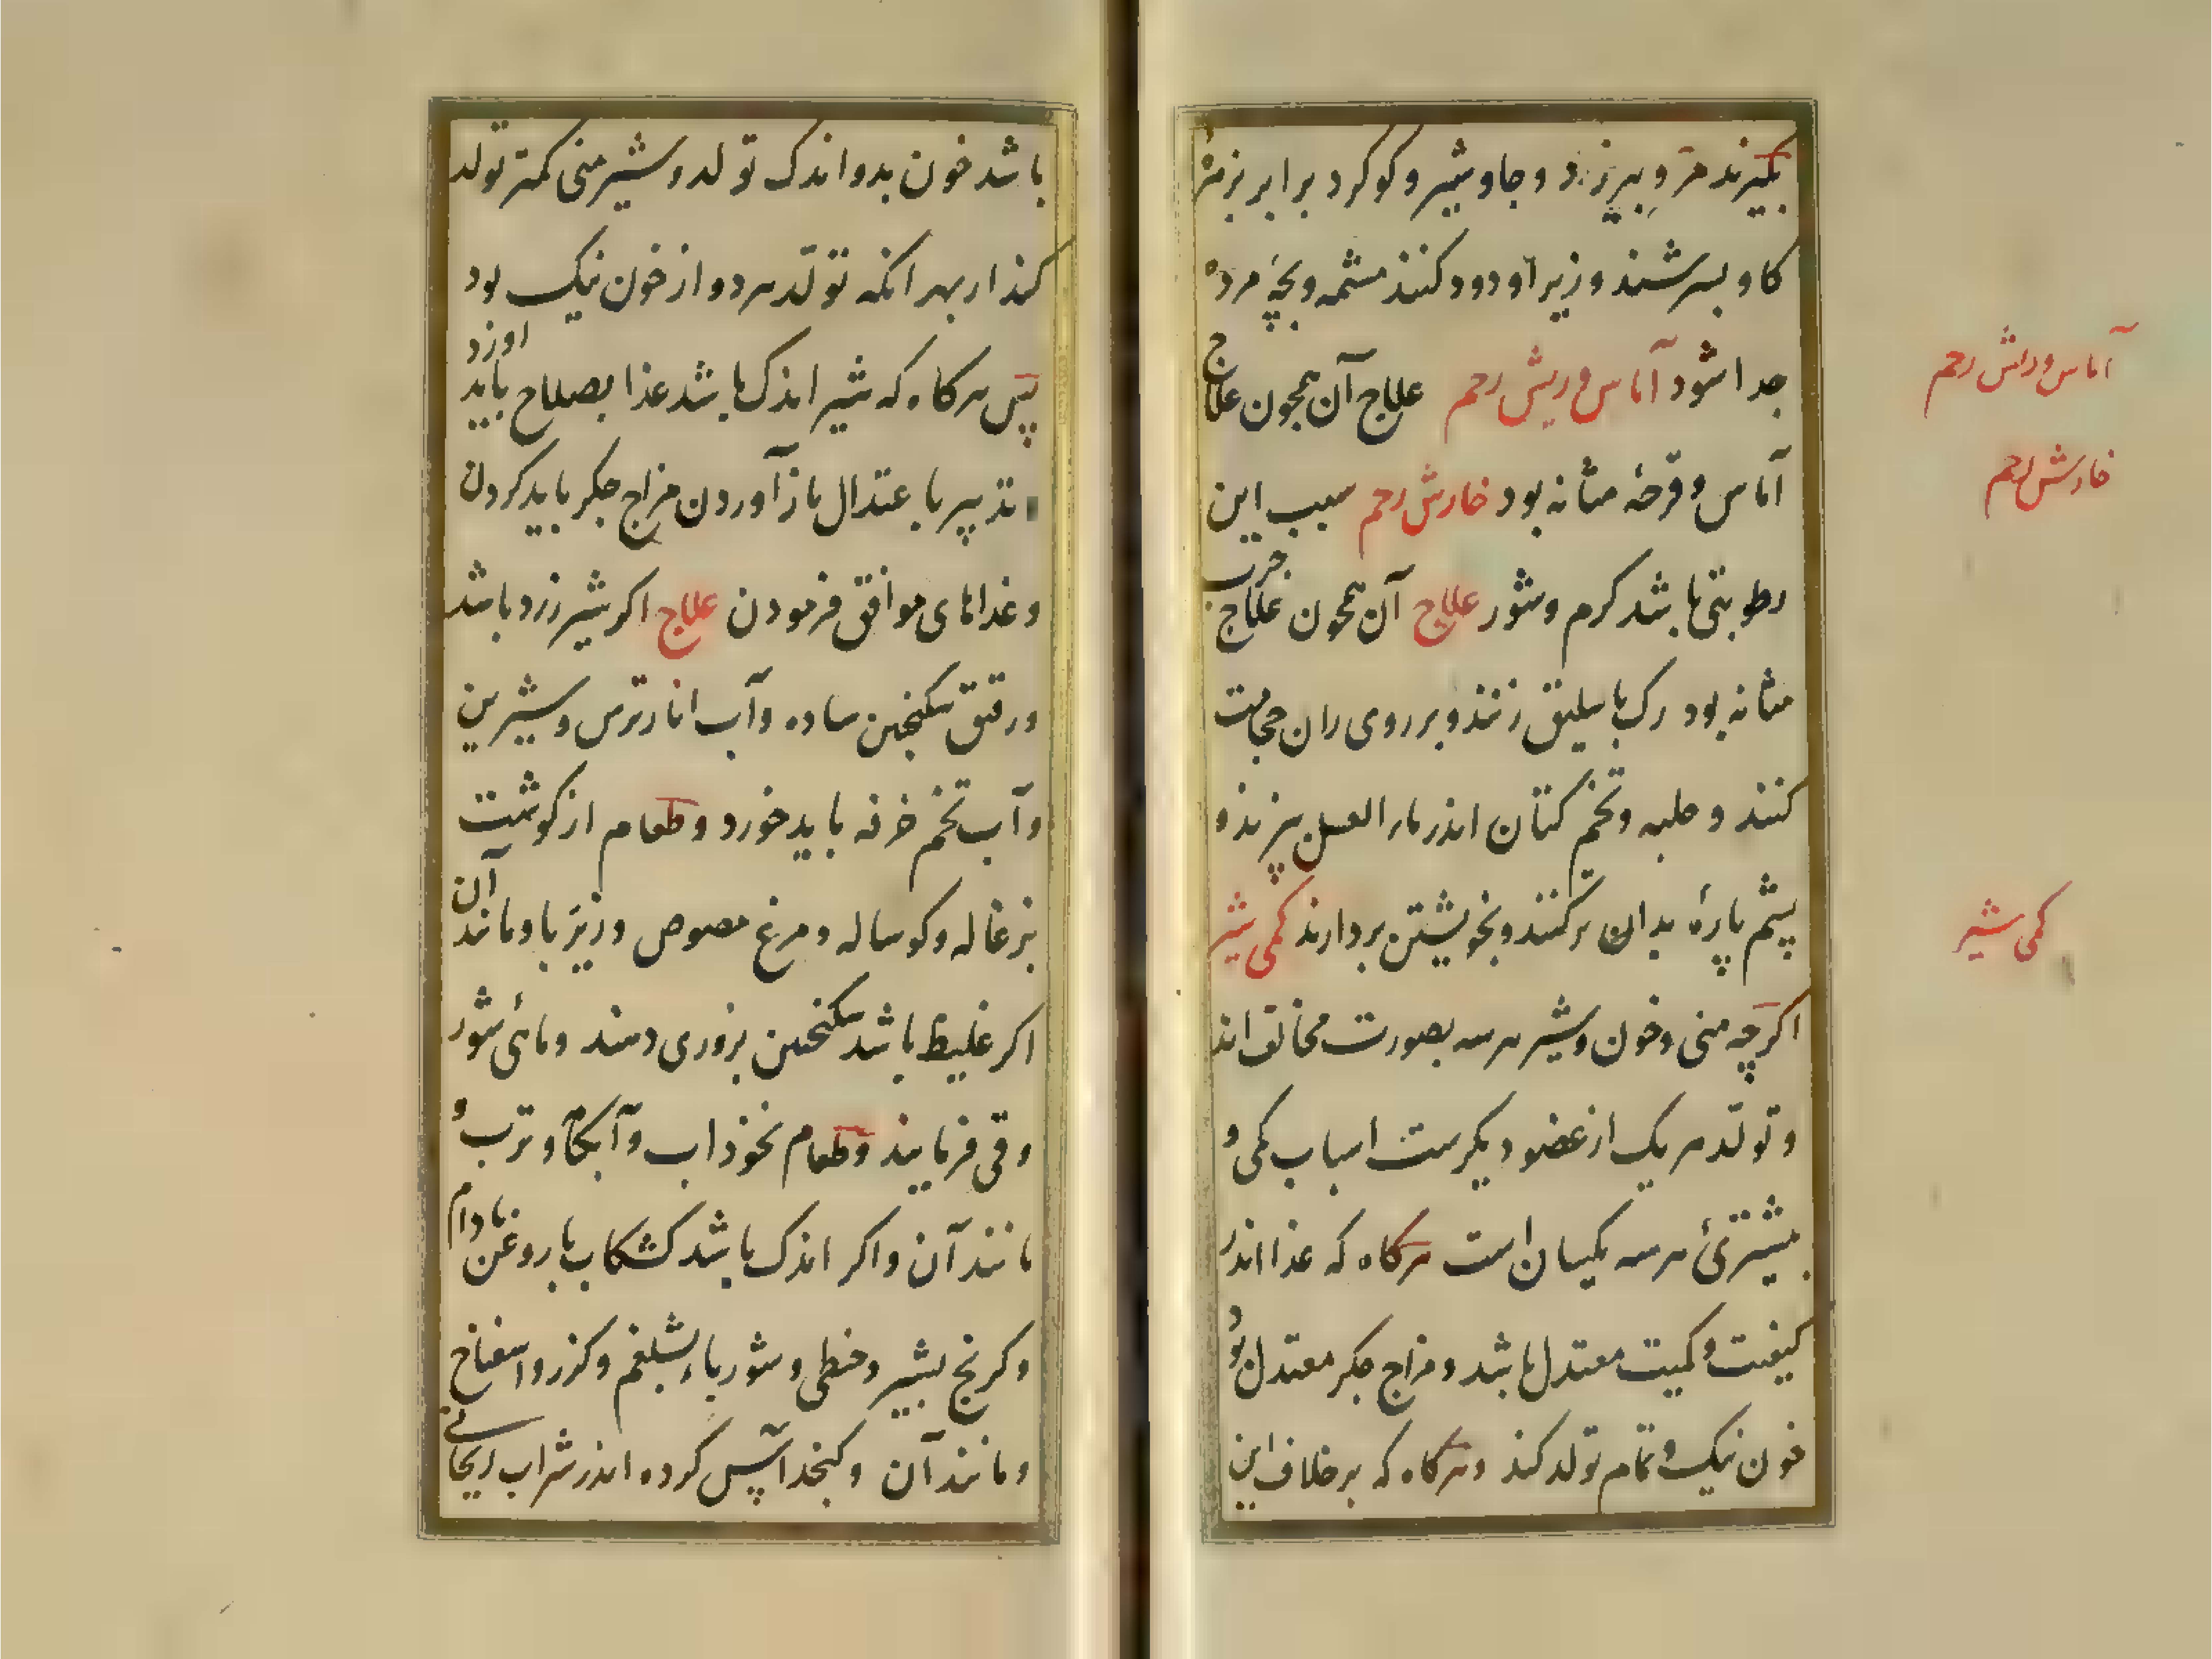 بکیرند مرّ و بیرزد و جاوشیر و کوکرد برابر بزهرهٔ
کاو بسرشند و زیر او دود کنند مشمه و بچهٔ مرده
جدا شود آماس و ریش رحم علاج آن همچون علاج
آماس و ریش رحم
آماس و قرحهٔ مثانه بود خارش رحم سبب این
خارش رحم
رطوبتی باشد کرم و شور علاج آن همچون علاج جرب
مثانه بود رک باسلیق زنند و بر روی ران حجامت
کنند و حلبه و تخم کتان اندر ماء العسل بپزند و
پشم پارهٔ بدان تر کنند و بخویشتن بردارند کمی شیر
کمی شیر
اکرچه منی و خون و شیر هر سه بصورت مخالف اند
و تولّد هر یک از عضو دیکرست اسباب کمی و
بیشترئ هر سه یکسان است هرکاه که غذا اندر
کیفیت و کمیت معتدل باشد و مزاج جکر معتدل بود
خون نیک و تمام تولد کند و هرکاه که بر خلاف این
باشد خون بد و اندک تولد و شیر منی کمتر تولد
کند از بهر انکه تولّد هر دو از خون نیک بود
پس هرکاه که شیر اندک باشد غذا بصلاح باید اورد
تدبیر باعتدال باز آوردن مزاج جکر باید کردن
و غذاهای موافق فرمودن علاج اکر شیر زرد باشد
و رقیق سکنجبین ساده و آب انار ترس و شیرین
و آب تخم خرفه باید خورد و طعام از کوشت
بزغاله و کوساله و مرغ مصوص و زیربا و مانند آن
اکر غلیظ باشد سکنجبین بزوری دهند و ماهی شور
و قی فرمایند و طعام نخوذاب و آبکامه و ترب و
مانند آن و اکر اندک باشد کشکاب با روغن بادام
و کرنج بشیر و حنطی و شورباء شلغم و کزر و اسفناخ
و مانند آن و کنجد آس کرده اندر شراب ریحانی